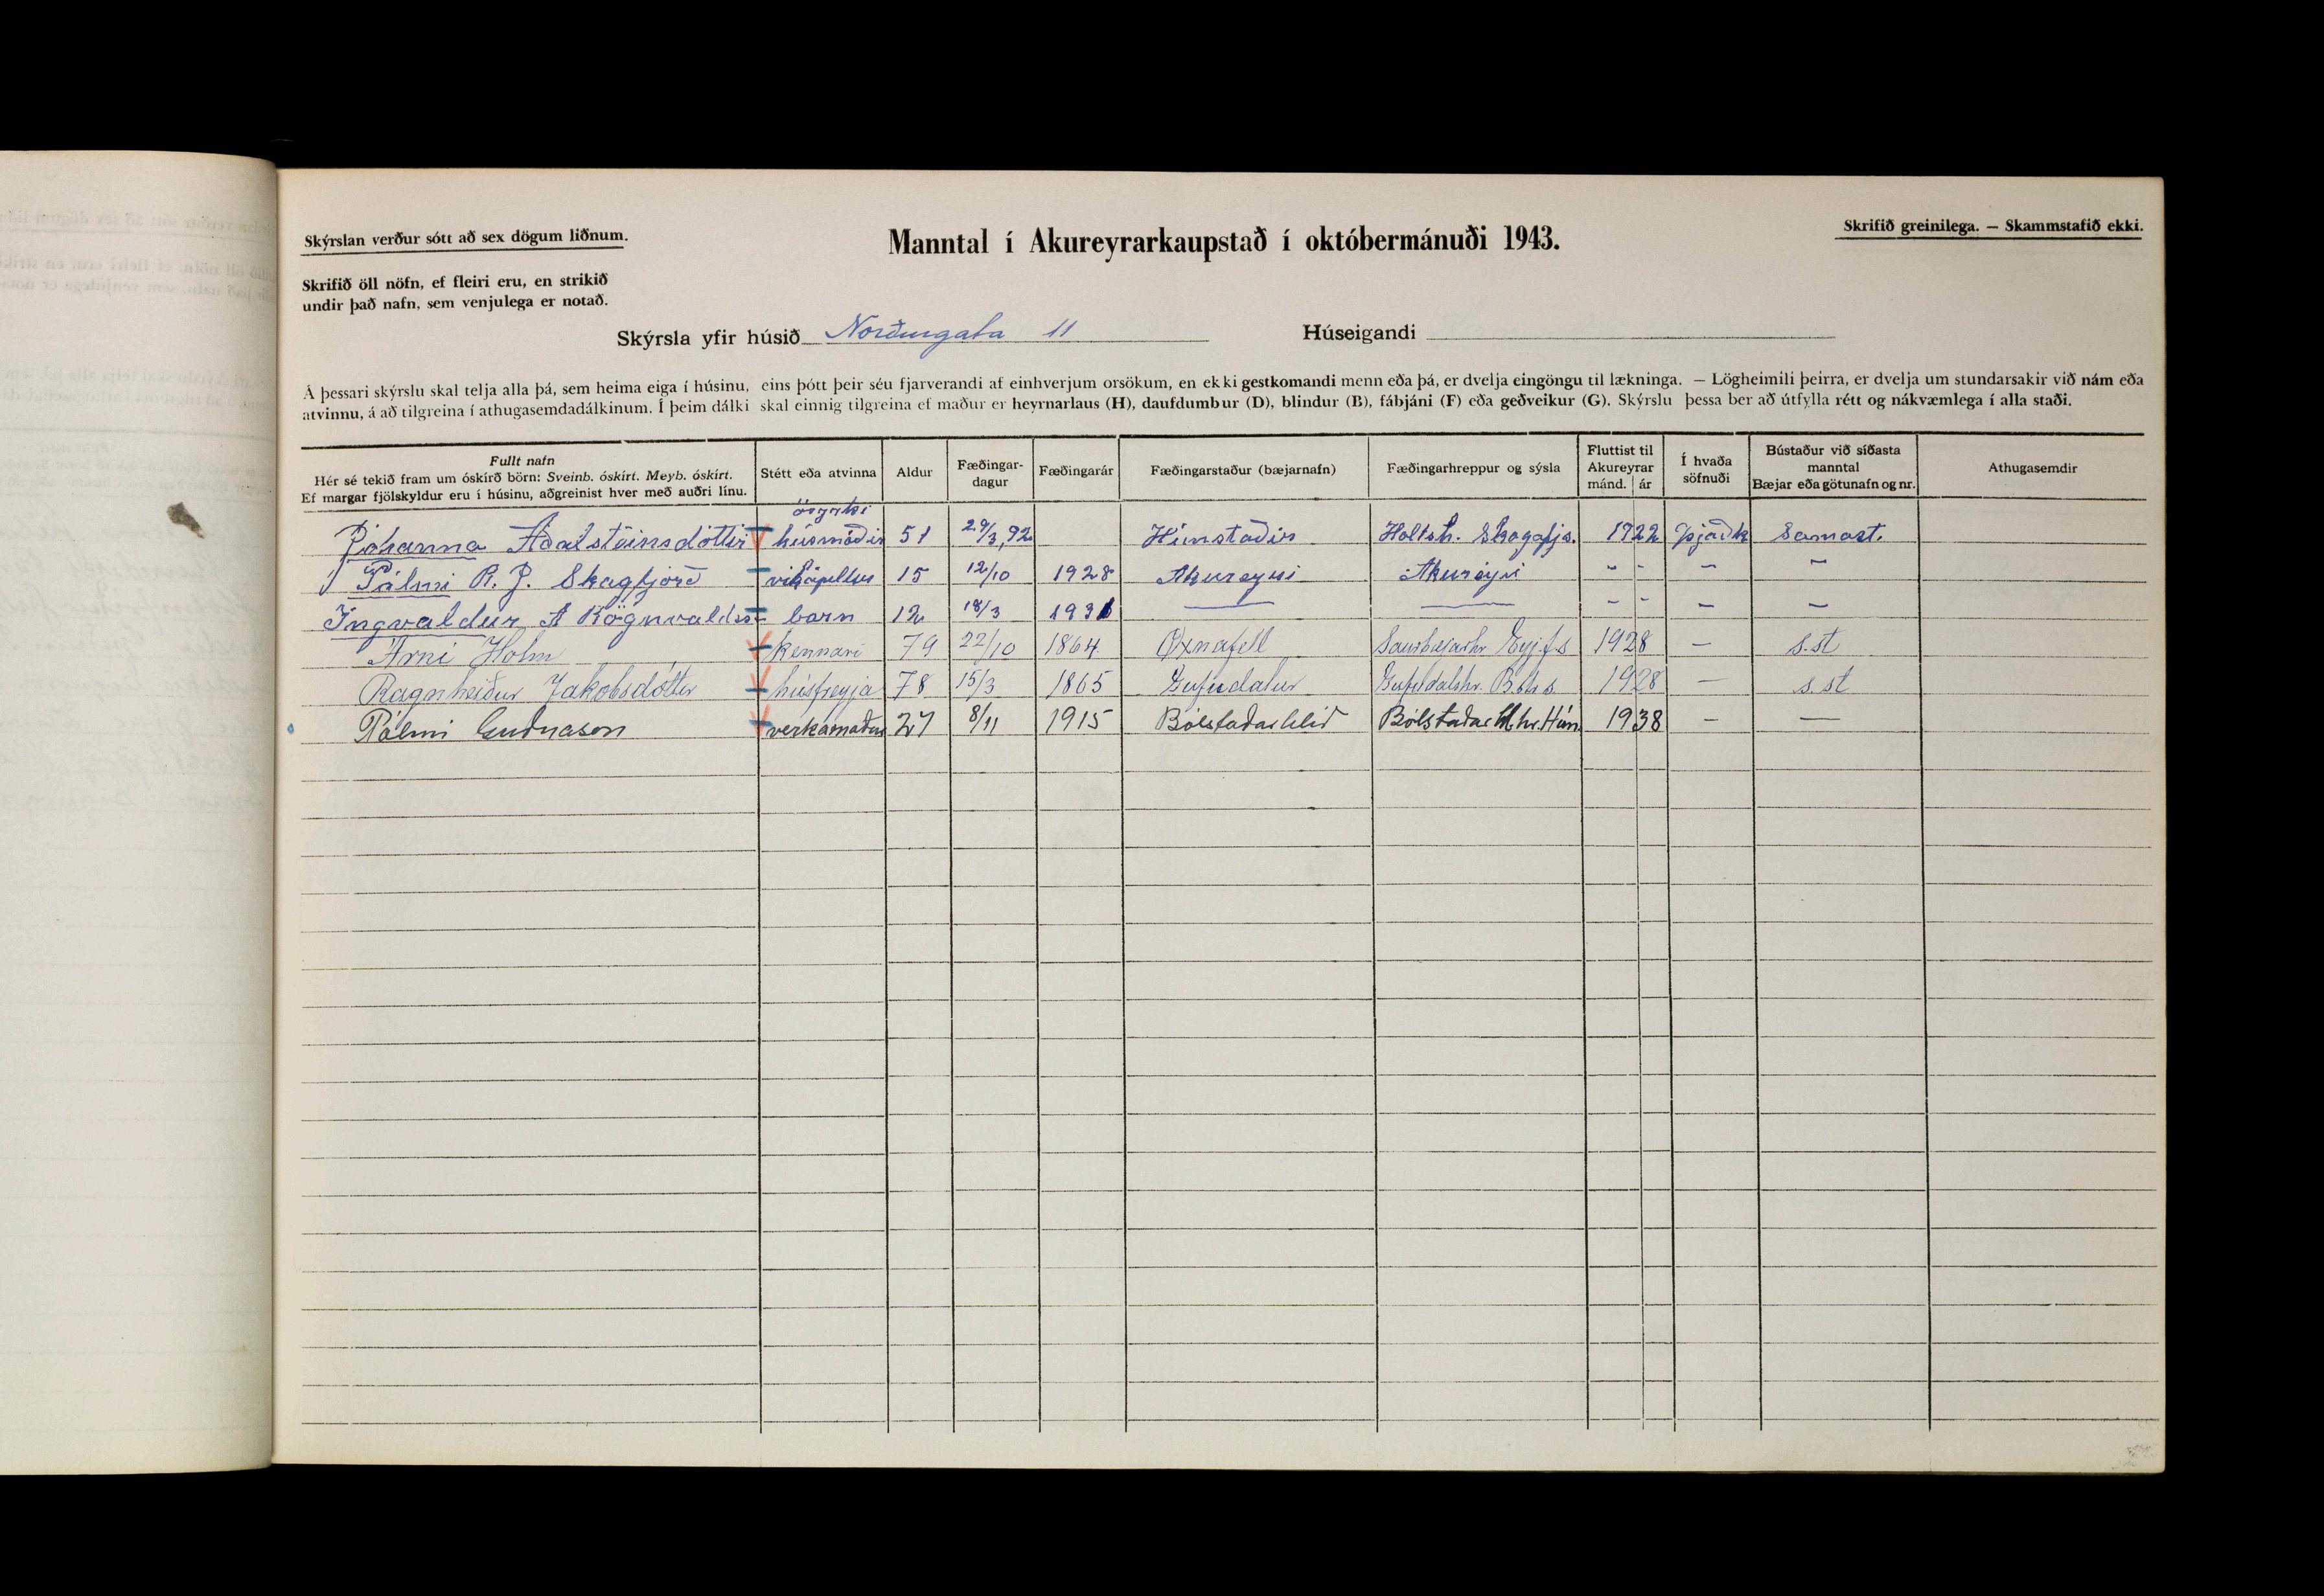 Skýrslan verður sótt að sex dögum liðnum.
Manntal í Akureyrarkaupstað í októbermánuði 1943.
Skrifið greinilega. — Skammstafið ekki.
Skrifið öll nöfn, ef fleiri eru, en strikið
undir það nafn, sem venjulega er notað.
Skýrsla yfir húsið Norðurgata 11 Húseigandi
Á þessari skýrslu skal telja alla þá, sem heima eiga í húsinu, eins þótt þeir séu fjarverandi af einhverjum orsökum, en ekki gestkomandi menn eða þá, er dvelja eingöngu til lækninga. — Lögheimili þeirra, er dvelja um stundarsakir við nám eða
atvinnu, á að tilgreina í athugasemdadálkinum. Í þeim dálki skal einnig tilgreina ef maður er heyrnarlaus (H), daufdumbur (D), blindur (B), fábjáni (F) eða geðveikur (G). Skýrslu þessa ber að útfylla rétt og nákvæmlega í alla staði.
Fullt nafn
Hér sé tekið fram um óskírð börn: Sveinb. óskírt. Meyb. óskírt.
Ef margar fjölskyldur eru í húsinu, aðgreinist hver með auðri línu.
Stétt eða atvinna
Aldur
Fæðingar-
dagur
Fæðingarár
Fæðingarstaður (bæjarnafn)
Fæðingarhreppur og sýsla
Fluttist til
Akureyrar
mánd. ár
Í hvaða
söfnuði
Bústaður við síðasta
manntal
Bæjar eða götunafn og nr.
Athugasemdir
öryrki
Jóhanna Aðalsteinsdóttir húsmóðir 51 29/3, 92 Holtsh. Skagafjs. 1922 Þjóðk Samast.
Pálmi R. J. Skagfjörð 15 12/10 1928 Akureyri Akureyri - - – –
Ingvaldur A Rögnvaldss barn 12 18/3 1931 — — - - – –
Árni Hólm kennari 79 22/10 1864 Öxnafell Saurbæjarhr Eyj.f.s 1928 — s.st
Ragnheiður Jakobsdóttir húsfreyja 78 15/3 1865 Gufudalur Gufudalshr. B.st.s. 1928 — s.st
Pálmi Guðnason verkamaður 27 8/11 1915 Bólstaðarhlíð Bólstaðarhl.hr. Hún. 1938 — —